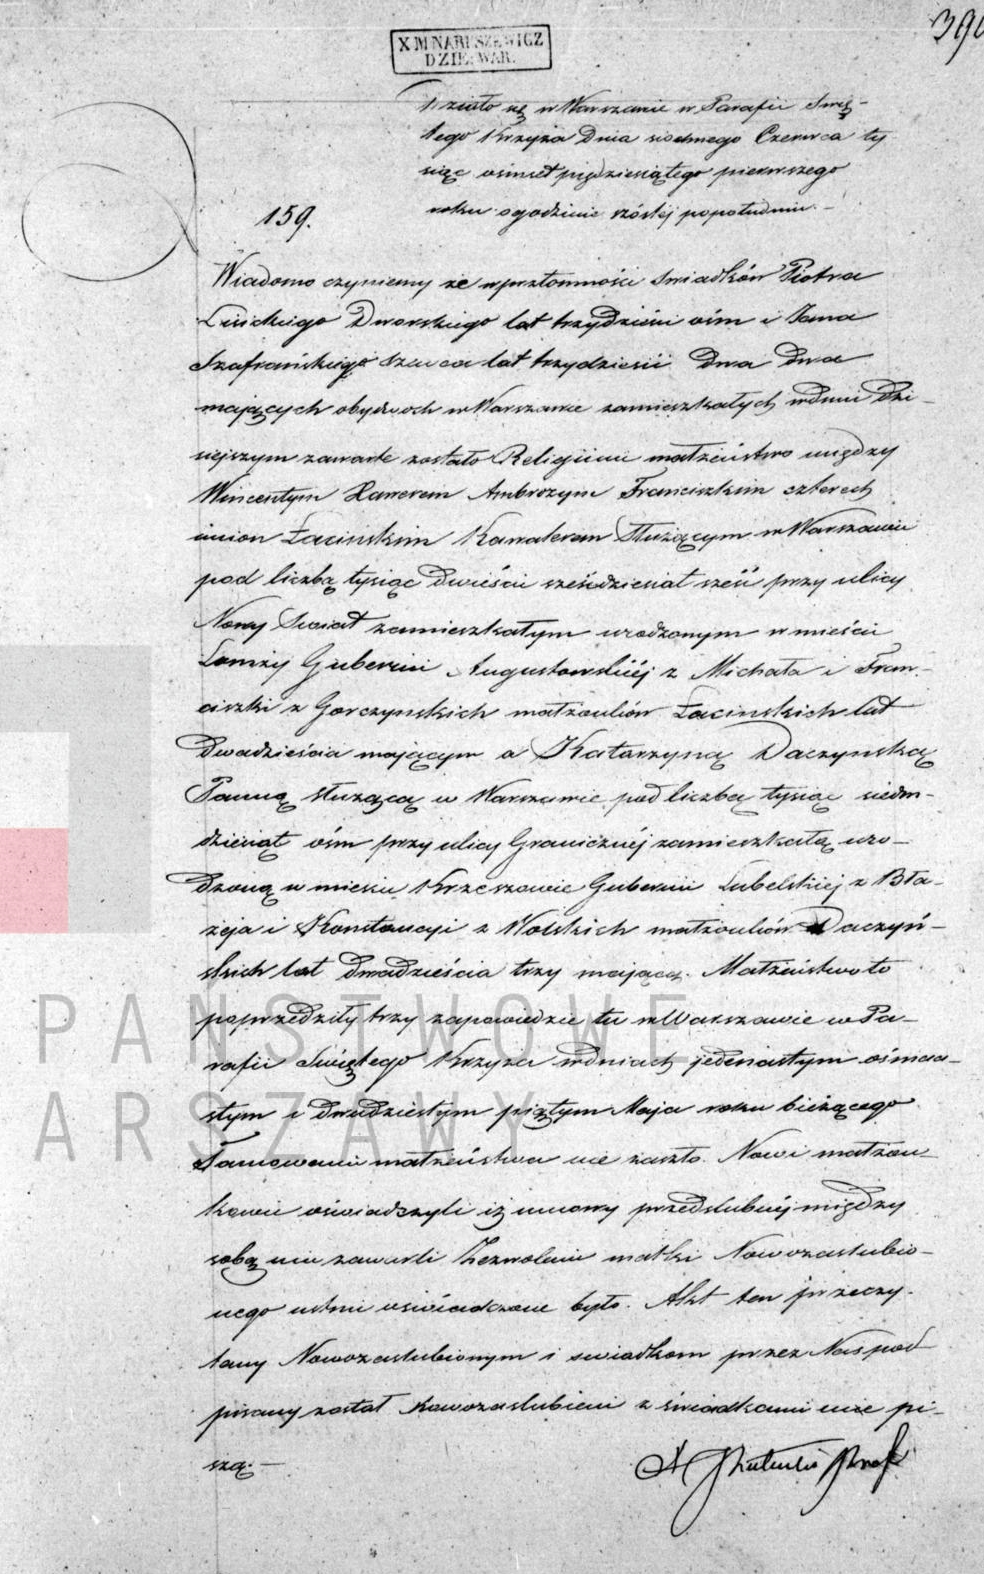 390
X M NARUSZEWICZ
DZIE: WAR.
Działo się w Warszawie w Parafii Swię-
tego Krzyża Dnia siodmego Czerwca ty-
siąc osmset pięдziesiątego pierwszego
roku o godzinie szóstej popołudniu.-
159.
Wiadomo czyniemy że w przytomności Swiadków Piotra
Dworskiego lat trzydzieści ośm i Jana
Szafrańskiego Szewca lat trzydzieści Dwa Dwa
mających obydwoch w Warszawie zamieszkałych w dniu Dzi-
siejszym zawarte zostało Religijne małżeństwo między
Wincentym Xawerem Ambrozym Franciszkiem czterech
imion Łacinskim Kawalerem Służącym w Warszawie
pod liczbą tysiąc dwieście sześćdziesiąt sześć przy ulicy
Nowy Swiat zamieszkałym urodzonym w mieście
Łomży Gubernii Augustowskiéj z Michała i Fran-
ciszki z Gorczynskich małżonków Łacinskich lat
Dwadzieścia mającym a Katarzyną Daczynską
Panną służącą w Warszawie pod liczbą tysiąc siedm-
dziesiąt ośm przy ulicy Granicznéj zamieszkałą uro-
dzoną w mieście Krzeszowie Gubernii Lubelskiéj z Bła-
żeja i Konstancyi z Wolskich małżonków Daczyń-
skich lat dwadzieścia trzy mającą. Małżeństwo to
poprzedziły trzy zapowiedzie tu w Warszawie w Pa-
rafii Swiętego Krzyża w dniach jedenastym ośmna-
stym i dwudziestym piątym Maja roku bieżącego
Tamowanie małżeństwa nie zaszło. Nowi małżon
kowie oświadczyli iż umowy przedślubnéj między
sobą nie zawarli Zezwolenie matki Nowozaslubio-
nego ustnie oświadczone było. Akt ten przeczy-
tany Nowozaslubionym i swiadkom przez Nas pod
pisany został Nowozaslubieni z świadkami nie pi-
szą.-
PANSTWOWE
ARSZAWY